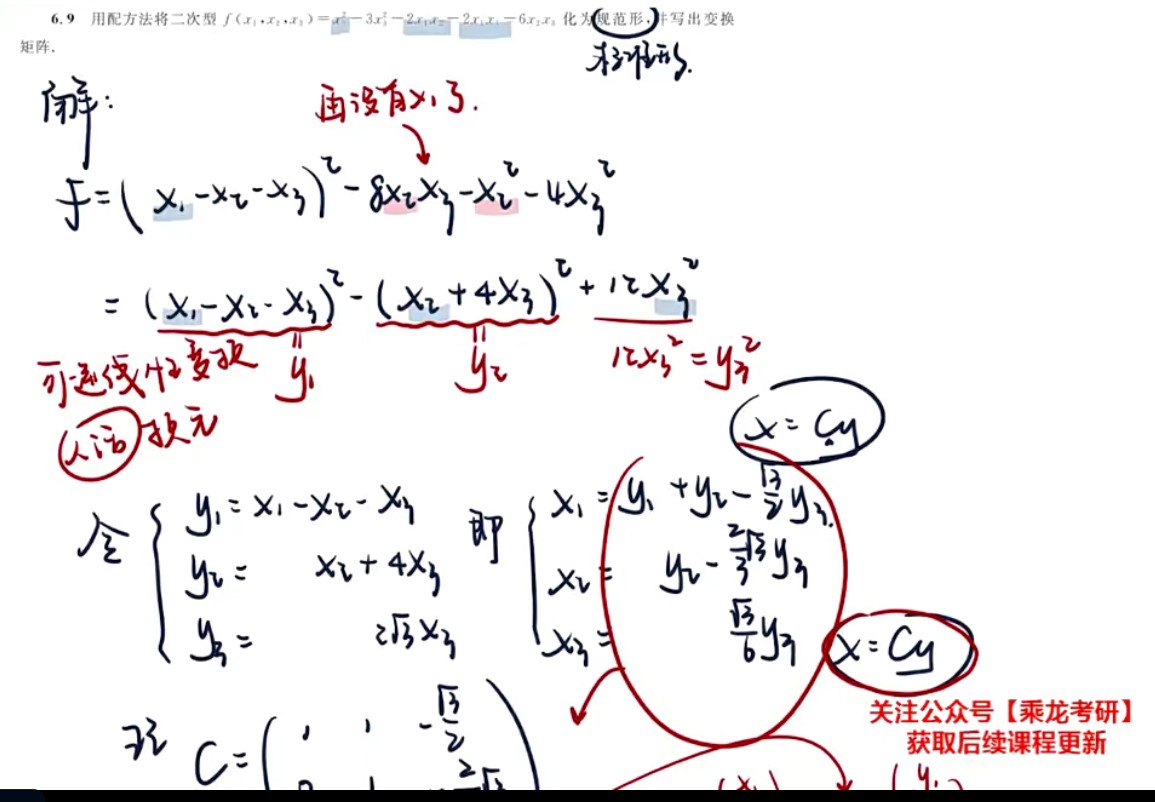 6.9 用配方法将二次型 f(x₁,x₂,x₃)=x₁²-3x₃²-2x₁x₂-2x₁x₃-6x₂x₃ 化为规范形,并写出变换
矩阵.
标准形.
解:
再没有x₁了.
f=(x₁-x₂-x₃)²-8x₂x₃-x₂²-4x₃²
=(x₁-x₂-x₃)²-(x₂+4x₃)²+12x₃²
可逆线性变换 y₁ y₂ 12x₃²=y₃²
人话 换元
x=Cy
令 { y₁=x₁-x₂-x₃ 即 { x₁=y₁+y₂-√3/2 y₃.
y₂= x₂+4x₃ x₂= y₂-2/3√3 y₃
y₃= 2√3x₃ x₃= √3/6 y₃ x=Cy
关注公众号【乘龙考研】
获取后续课程更新
C=( 1 1 -√3/2
(x₁) (y₁)